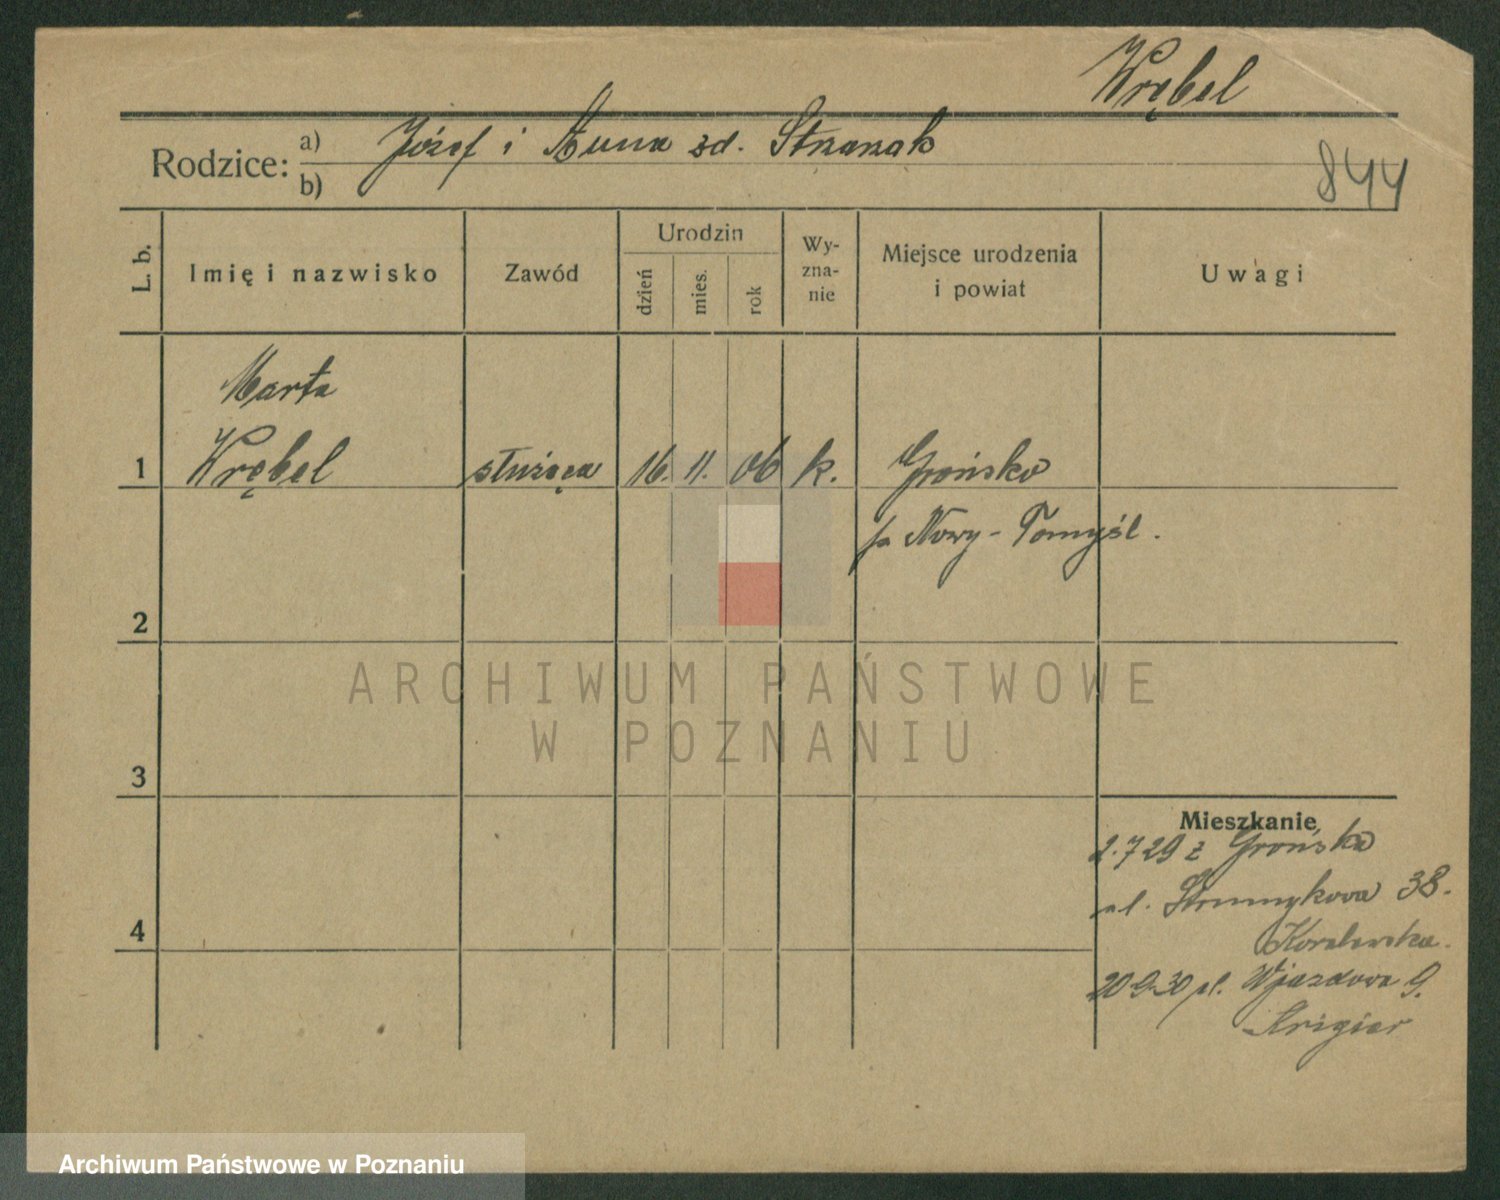 Wrębel
Rodzice: a) Józef i Anna zd. Strzazak
b)
844
L. b.
Imię i nazwisko
Zawód
Urodzin
dzień
mies.
rok
Wy-
zna-
nie
Miejsce urodzenia
i powiat
Uwagi
Marta
1 Wrębel służąca 16. 11. 06 k. Grońsko
p. Nowy-Tomyśl.
2
3
4
Mieszkanie
2.7 29 z Grońska
ul. Strumykowa 38.
20 9.30 ul. Wjazdowa 9.
ARCHIWUM PAŃSTWOWE
W POZNANIU
Archiwum Państwowe w Poznaniu